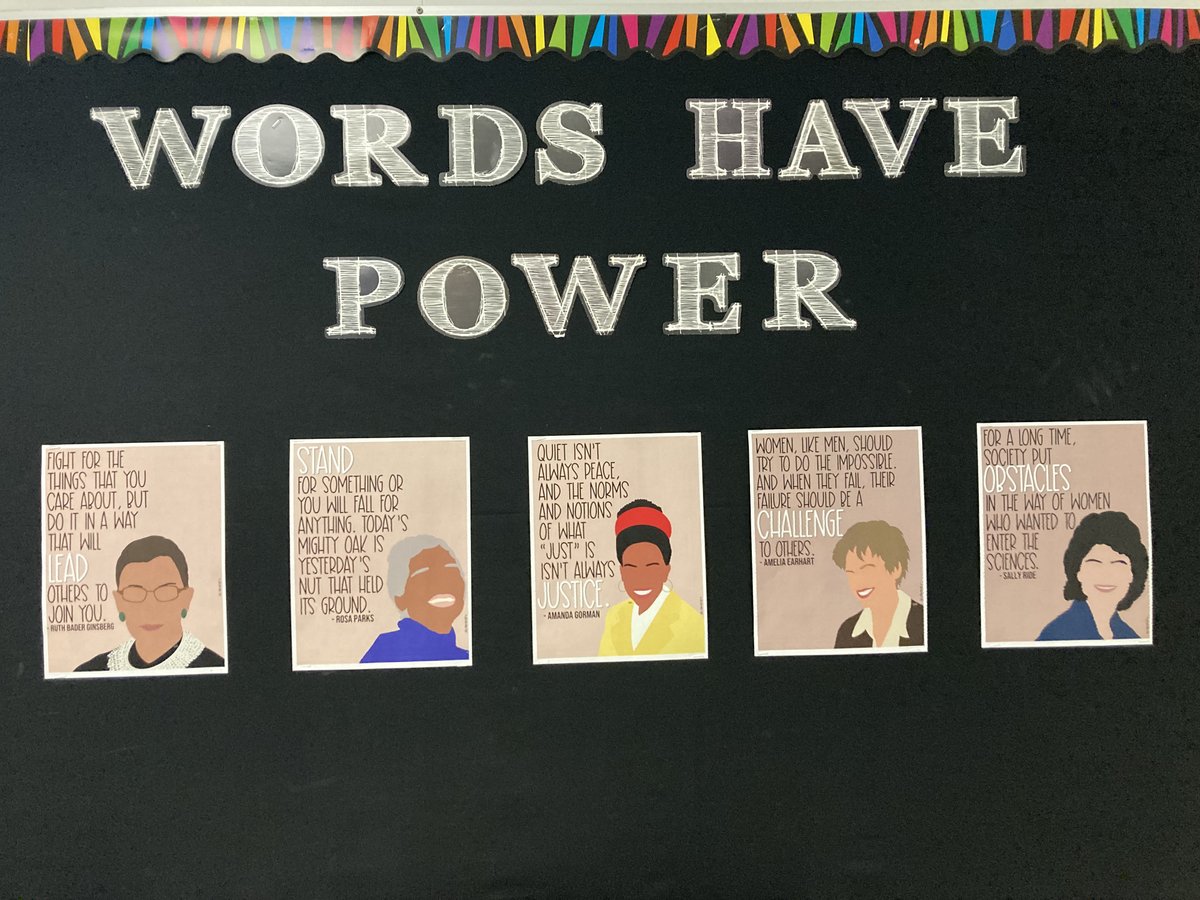 WORDS HAVE
POWER
FIGHT FOR THE
THINGS THAT YOU
CARE ABOUT, BUT
DO IT IN A WAY
THAT WILL
LEAD
OTHERS TO
JOIN YOU.
- RUTH BADER GINSBERG
STAND
FOR SOMETHING OR
YOU WILL FALL FOR
ANYTHING. TODAY'S
MIGHTY OAK IS
YESTERDAY'S
NUT THAT HELD
ITS GROUND.
- ROSA PARKS
QUIET ISN'T
ALWAYS PEACE,
AND THE NORMS
AND NOTIONS
OF WHAT
"JUST" IS
ISN'T ALWAYS
JUSTICE.
- AMANDA GORMAN
WOMEN, LIKE MEN, SHOULD
TRY TO DO THE IMPOSSIBLE.
AND WHEN THEY FAIL, THEIR
FAILURE SHOULD BE A
CHALLENGE
TO OTHERS.
- AMELIA EARHART
FOR A LONG TIME,
SOCIETY PUT
OBSTACLES
IN THE WAY OF WOMEN
WHO WANTED TO
ENTER THE
SCIENCES.
- SALLY RIDE